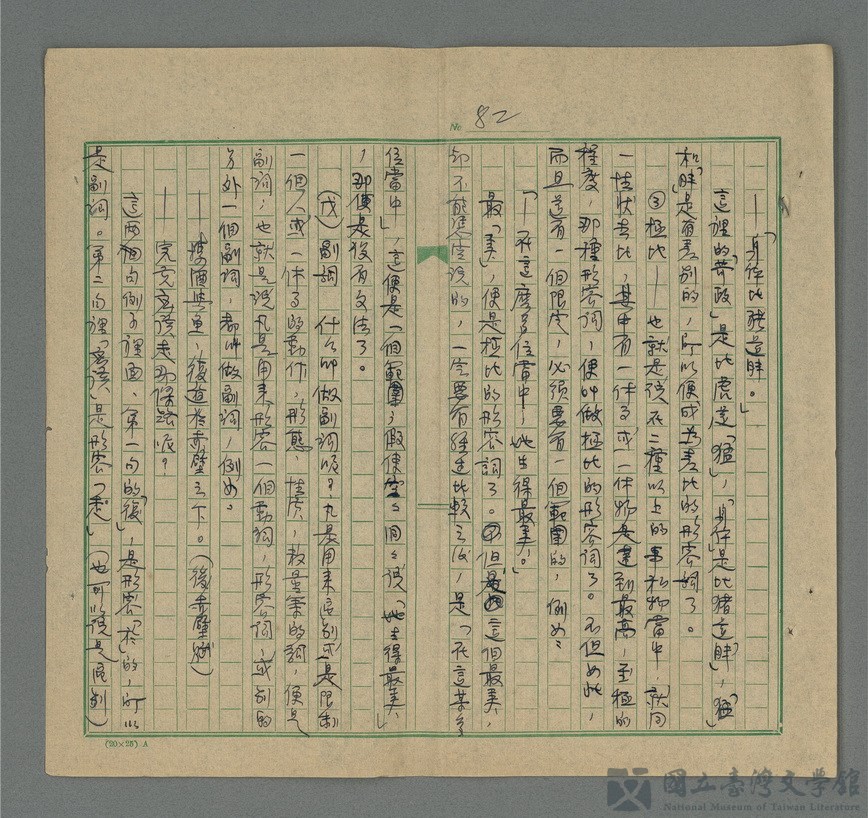 No 82
——「身体比豬還胖。」
這裡的「苛政」是比虎還「猛」,「身体」是比豬還「胖」,「猛」
和「胖」是有差別的,所以便成為差比的形容詞了。
③極比——也就是說在二種以上的事和物當中,就同
一性狀去比,其中有一件事或一件物是達到最高,至極的
程度,那種形容詞,便叫做極比的形容詞了。不但如此,
而且還有一個限定,必須要有一個範圍的,例如:
「——在這麼多位當中,她生得最美。」
最「美」,便是極比的形容詞了。但是這個最美,
却不能憑空說的,一定要有經過比較之後,是「在這某多
位當中」,這便是一個範圍,假使空空洞洞說「她生得最美」
,那便是沒有文法了。
(戊)副詞 什么叫做副詞呢?凡是用來區別或是限制
一個人或一件事的動作,形態,性質,數量等的詞,便是
副詞,也就是說凡是用來形容一個動詞,形容詞,或別的
另外一個副詞,都叫做副詞,例如。
——携酒與魚,復遊於赤壁之下。(後赤壁賦)
——究竟應該走那條路呢?
這兩個句例子裡面、第一句的「復」,是形容「於」的,所以
是副詞。第二句裡「應該」是形容「走」(也可以說是區別)
(20×25) A
國立臺灣文學館
National Museum of Taiwan Literature